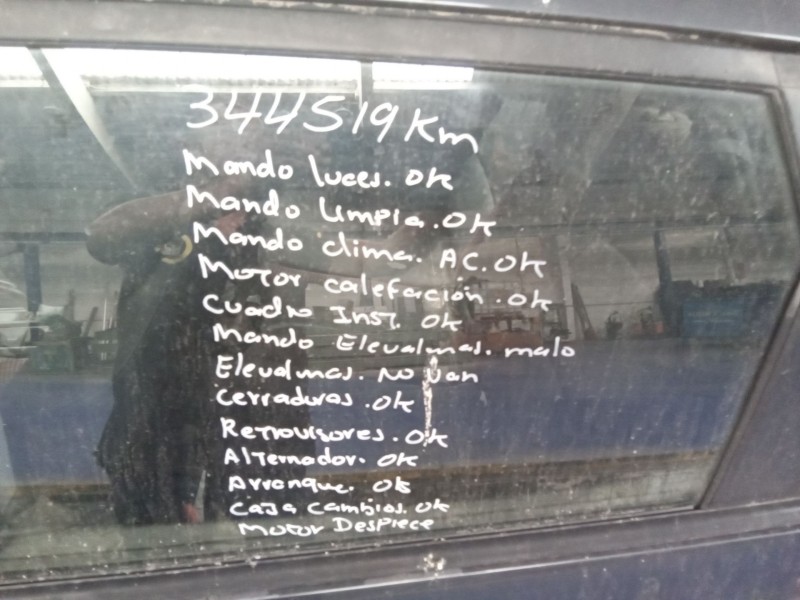 344519 Km
Mando luces. ok
Mando limpia. OK
Mando clima. AC. OK
Motor calefación. ok
Cuadro Inst. ok
Mando Elevalunas. malo
Elevalunas. no van
Cerraduras. ok
Retrovisores. ok
Alternador. ok
Arranque. ok
Caja Cambios. ok
Motor Despiece